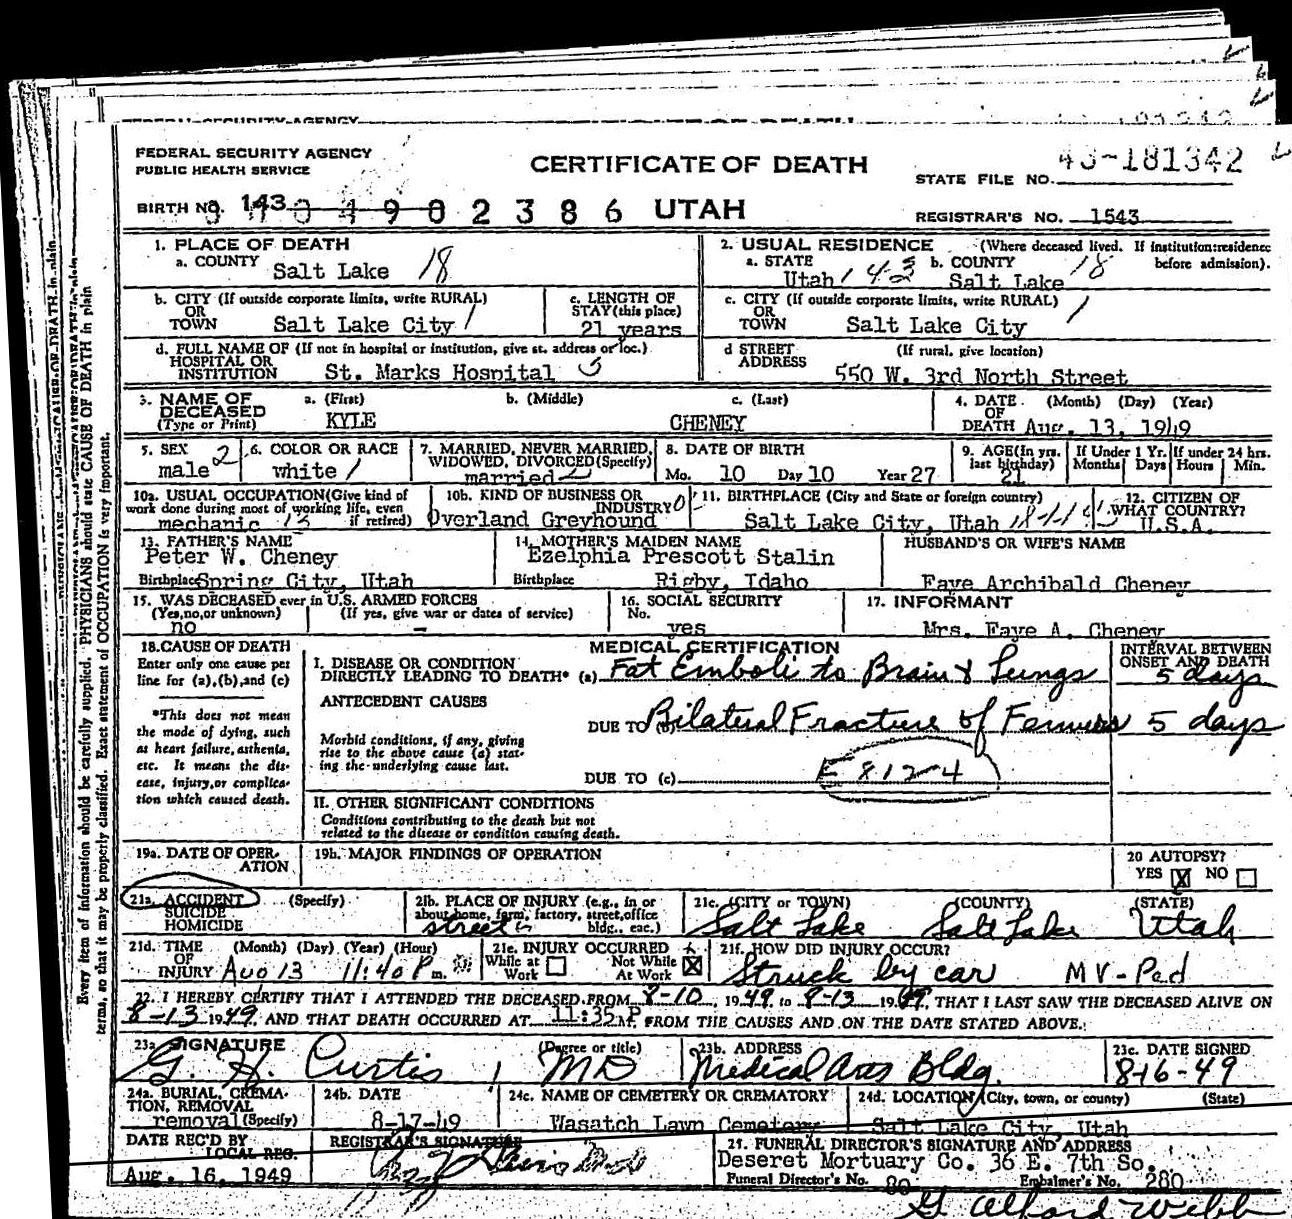 FEDERAL SECURITY AGENCY
PUBLIC HEALTH SERVICE
CERTIFICATE OF DEATH
STATE FILE NO. 49-181342
BIRTH NO. 143
0 4 9 0 2 3 8 6 UTAH
REGISTRAR'S NO. 1543
1. PLACE OF DEATH
a. COUNTY Salt Lake 18
2. USUAL RESIDENCE (Where deceased lived. If institution:residence before admission).
a. STATE Utah 43 b. COUNTY Salt Lake 18
b. CITY (If outside corporate limits, write RURAL)
OR
TOWN Salt Lake City 1
c. LENGTH OF
STAY(this place)
21 years
c. CITY (If outside corporate limits, write RURAL) 1
OR
TOWN Salt Lake City
d. FULL NAME OF (If not in hospital or institution, give st. address or loc.)
HOSPITAL OR
INSTITUTION St. Marks Hospital
d STREET (If rural, give location)
ADDRESS 550 W. 3rd North Street
3. NAME OF a. (First) b. (Middle) c. (Last)
DECEASED
(Type or Print) KYLE CHENEY
4. DATE (Month) (Day) (Year)
OF
DEATH Aug. 13, 1949
5. SEX
male 2
6. COLOR OR RACE
white 1
7. MARRIED, NEVER MARRIED,
WIDOWED, DIVORCED(Specify)
married 2
8. DATE OF BIRTH
Mo. 10 Day 10 Year 27
9. AGE(In yrs.
last birthday)
21
If Under 1 Yr.
Months Days
If under 24 hrs.
Hours Min.
10a. USUAL OCCUPATION(Give kind of
work done during most of working life, even
if retired)
mechanic
10b. KIND OF BUSINESS OR
INDUSTRY
Overland Greyhound
11. BIRTHPLACE (City and State or foreign country)
Salt Lake City, Utah
12. CITIZEN OF
WHAT COUNTRY?
U.S.A.
13. FATHER'S NAME
Peter W. Cheney
Birthplace Spring City, Utah
14. MOTHER'S MAIDEN NAME
Ezelphia Prescott Stalin
Birthplace Rigby, Idaho
HUSBAND'S OR WIFE'S NAME
Faye Archibald Cheney
15. WAS DECEASED ever in U.S. ARMED FORCES
(Yes,no,or unknown) (If yes, give war or dates of service)
no -
16. SOCIAL SECURITY
No.
yes
17. INFORMANT
Mrs. Faye A. Cheney
18.CAUSE OF DEATH
Enter only one cause per
line for (a),(b),and (c)
*This does not mean
the mode of dying, such
as heart failure, asthenia,
etc. It means the dis-
ease, injury,or complica-
tion which caused death.
MEDICAL CERTIFICATION
INTERVAL BETWEEN
ONSET AND DEATH
I. DISEASE OR CONDITION
DIRECTLY LEADING TO DEATH* (a) Fat Emboli to Brain & Lungs 5 days
ANTECEDENT CAUSES
DUE TO (b) Bilateral Fracture of Femurs 5 days
Morbid conditions, if any, giving
rise to the above cause (a) stat-
ing the underlying cause last.
DUE TO (c) E 812-4
II. OTHER SIGNIFICANT CONDITIONS
Conditions contributing to the death but not
related to the disease or condition causing death.
19a. DATE OF OPER-
ATION
19b. MAJOR FINDINGS OF OPERATION
20 AUTOPSY?
YES X NO
21a. ACCIDENT (Specify)
SUICIDE
HOMICIDE
21b. PLACE OF INJURY (e.g., in or
about home, farm, factory, street,office
bldg., eac.)
street
21c. (CITY or TOWN) (COUNTY) (STATE)
Salt Lake Salt Lake Utah
21d. TIME (Month) (Day) (Year) (Hour)
OF
INJURY Aug 13 11:40 P m.
21e. INJURY OCCURRED
While at Work Not While At Work X
21f. HOW DID INJURY OCCUR?
Struck by car MV-Ped
22. I HEREBY CERTIFY THAT I ATTENDED THE DECEASED FROM 8-10, 1949, to 8-13 1949, THAT I LAST SAW THE DECEASED ALIVE ON
8-13 1949, AND THAT DEATH OCCURRED AT 11:35 P M. FROM THE CAUSES AND ON THE DATE STATED ABOVE.
23a SIGNATURE (Degree or title)
G. H. Curtis, MD
23b. ADDRESS
Medical Arts Bldg.
23c. DATE SIGNED
8-16-49
24a. BURIAL, CREMA-
TION, REMOVAL
removal (Specify)
24b. DATE
8-17-49
24c. NAME OF CEMETERY OR CREMATORY
Wasatch Lawn Cemetery
24d. LOCATION (City, town, or county) (State)
Salt Lake City, Utah
DATE REC'D BY
LOCAL REG.
Aug. 16, 1949
REGISTRAR'S SIGNATURE
25. FUNERAL DIRECTOR'S SIGNATURE AND ADDRESS
Deseret Mortuary Co. 36 E. 7th So.
Funeral Director's No. 80 Embalmer's No. 280
G. Alford Webb
Every item of information should be carefully supplied. PHYSICIANS should state CAUSE OF DEATH in plain
terms, so that it may be properly classified. Exact statement of OCCUPATION is very important.